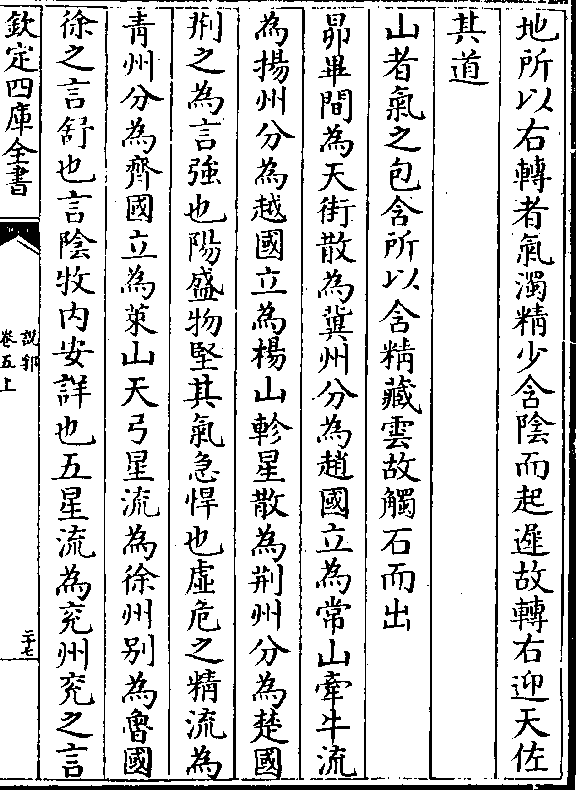 地所以右轉者氣濁精少含陰而起遲故轉右迎天佐
其道
山者氣之包含所以含精藏雲故觸石而出
昴畢間為天街散為冀州分為趙國立為常山牽牛流
為揚州分為越國立為楊山軫星散為荆州分為楚國
荆之為言強也陽盛物堅其氣急悍也虛危之精流為
青州分為齊國立為萊山天弓星流為徐州别為魯國
徐之言舒也言陰牧内安詳也五星流為兖州兖之言
欽定四庫全書
說郛
卷五上
二十七